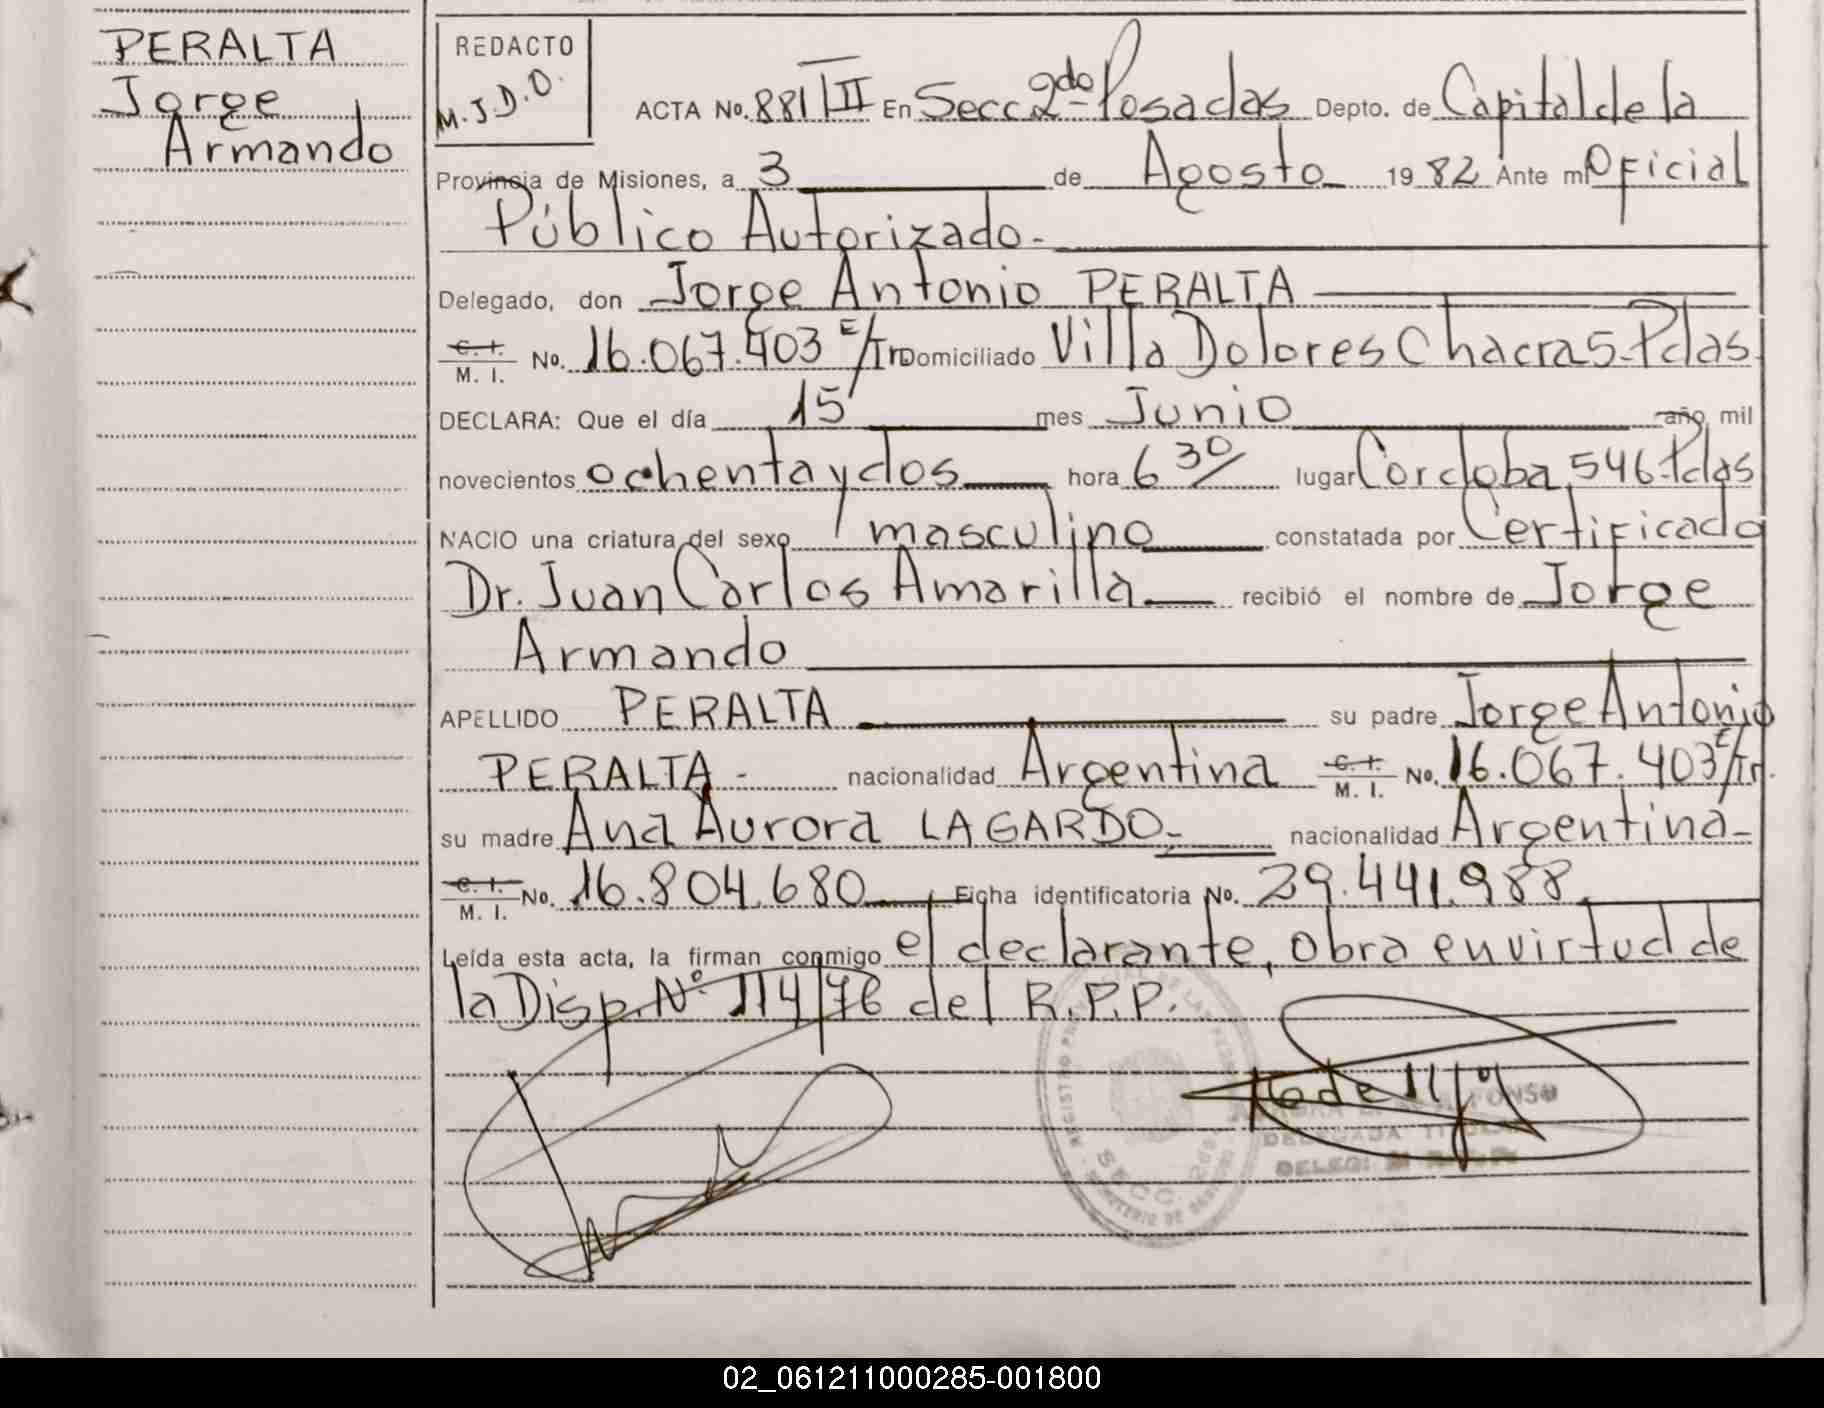 PERALTA
Jorge
Armando
REDACTO
M.J.D.O.
ACTA No. 881/III En Secc 2da- Posadas Depto. de Capital de la
Provincia de Misiones, a 3 de Agosto 1982 Ante mi Oficial
Público Autorizado.-
Delegado, don Jorge Antonio PERALTA
C. I.
M. I. No. 16.067.403 E/Tr Domiciliado Villa Dolores Chacra 5-Pdas
DECLARA: Que el día 15 mes Junio año mil
novecientos ochenta y dos hora 6 30/ lugar Cordoba 546-Pdas
NACIO una criatura del sexo masculino constatada por Certificado
Dr. Juan Carlos Amarilla recibió el nombre de Jorge
Armando
APELLIDO PERALTA su padre Jorge Antonio
PERALTA- nacionalidad Argentina C. I.
M. I. No. 16.067.403 E/Tr.
su madre Ana Aurora LAGARDO- nacionalidad Argentina-
C. I.
M. I. No. 16.804.680 Ficha identificatoria No. 29.441.988
Leída esta acta, la firman conmigo el declarante, obra en virtud de
la Disp. Nº 114/76 del R.P.P.
SECC. 2da
DELEGADA
DELEG:
02_061211000285-001800